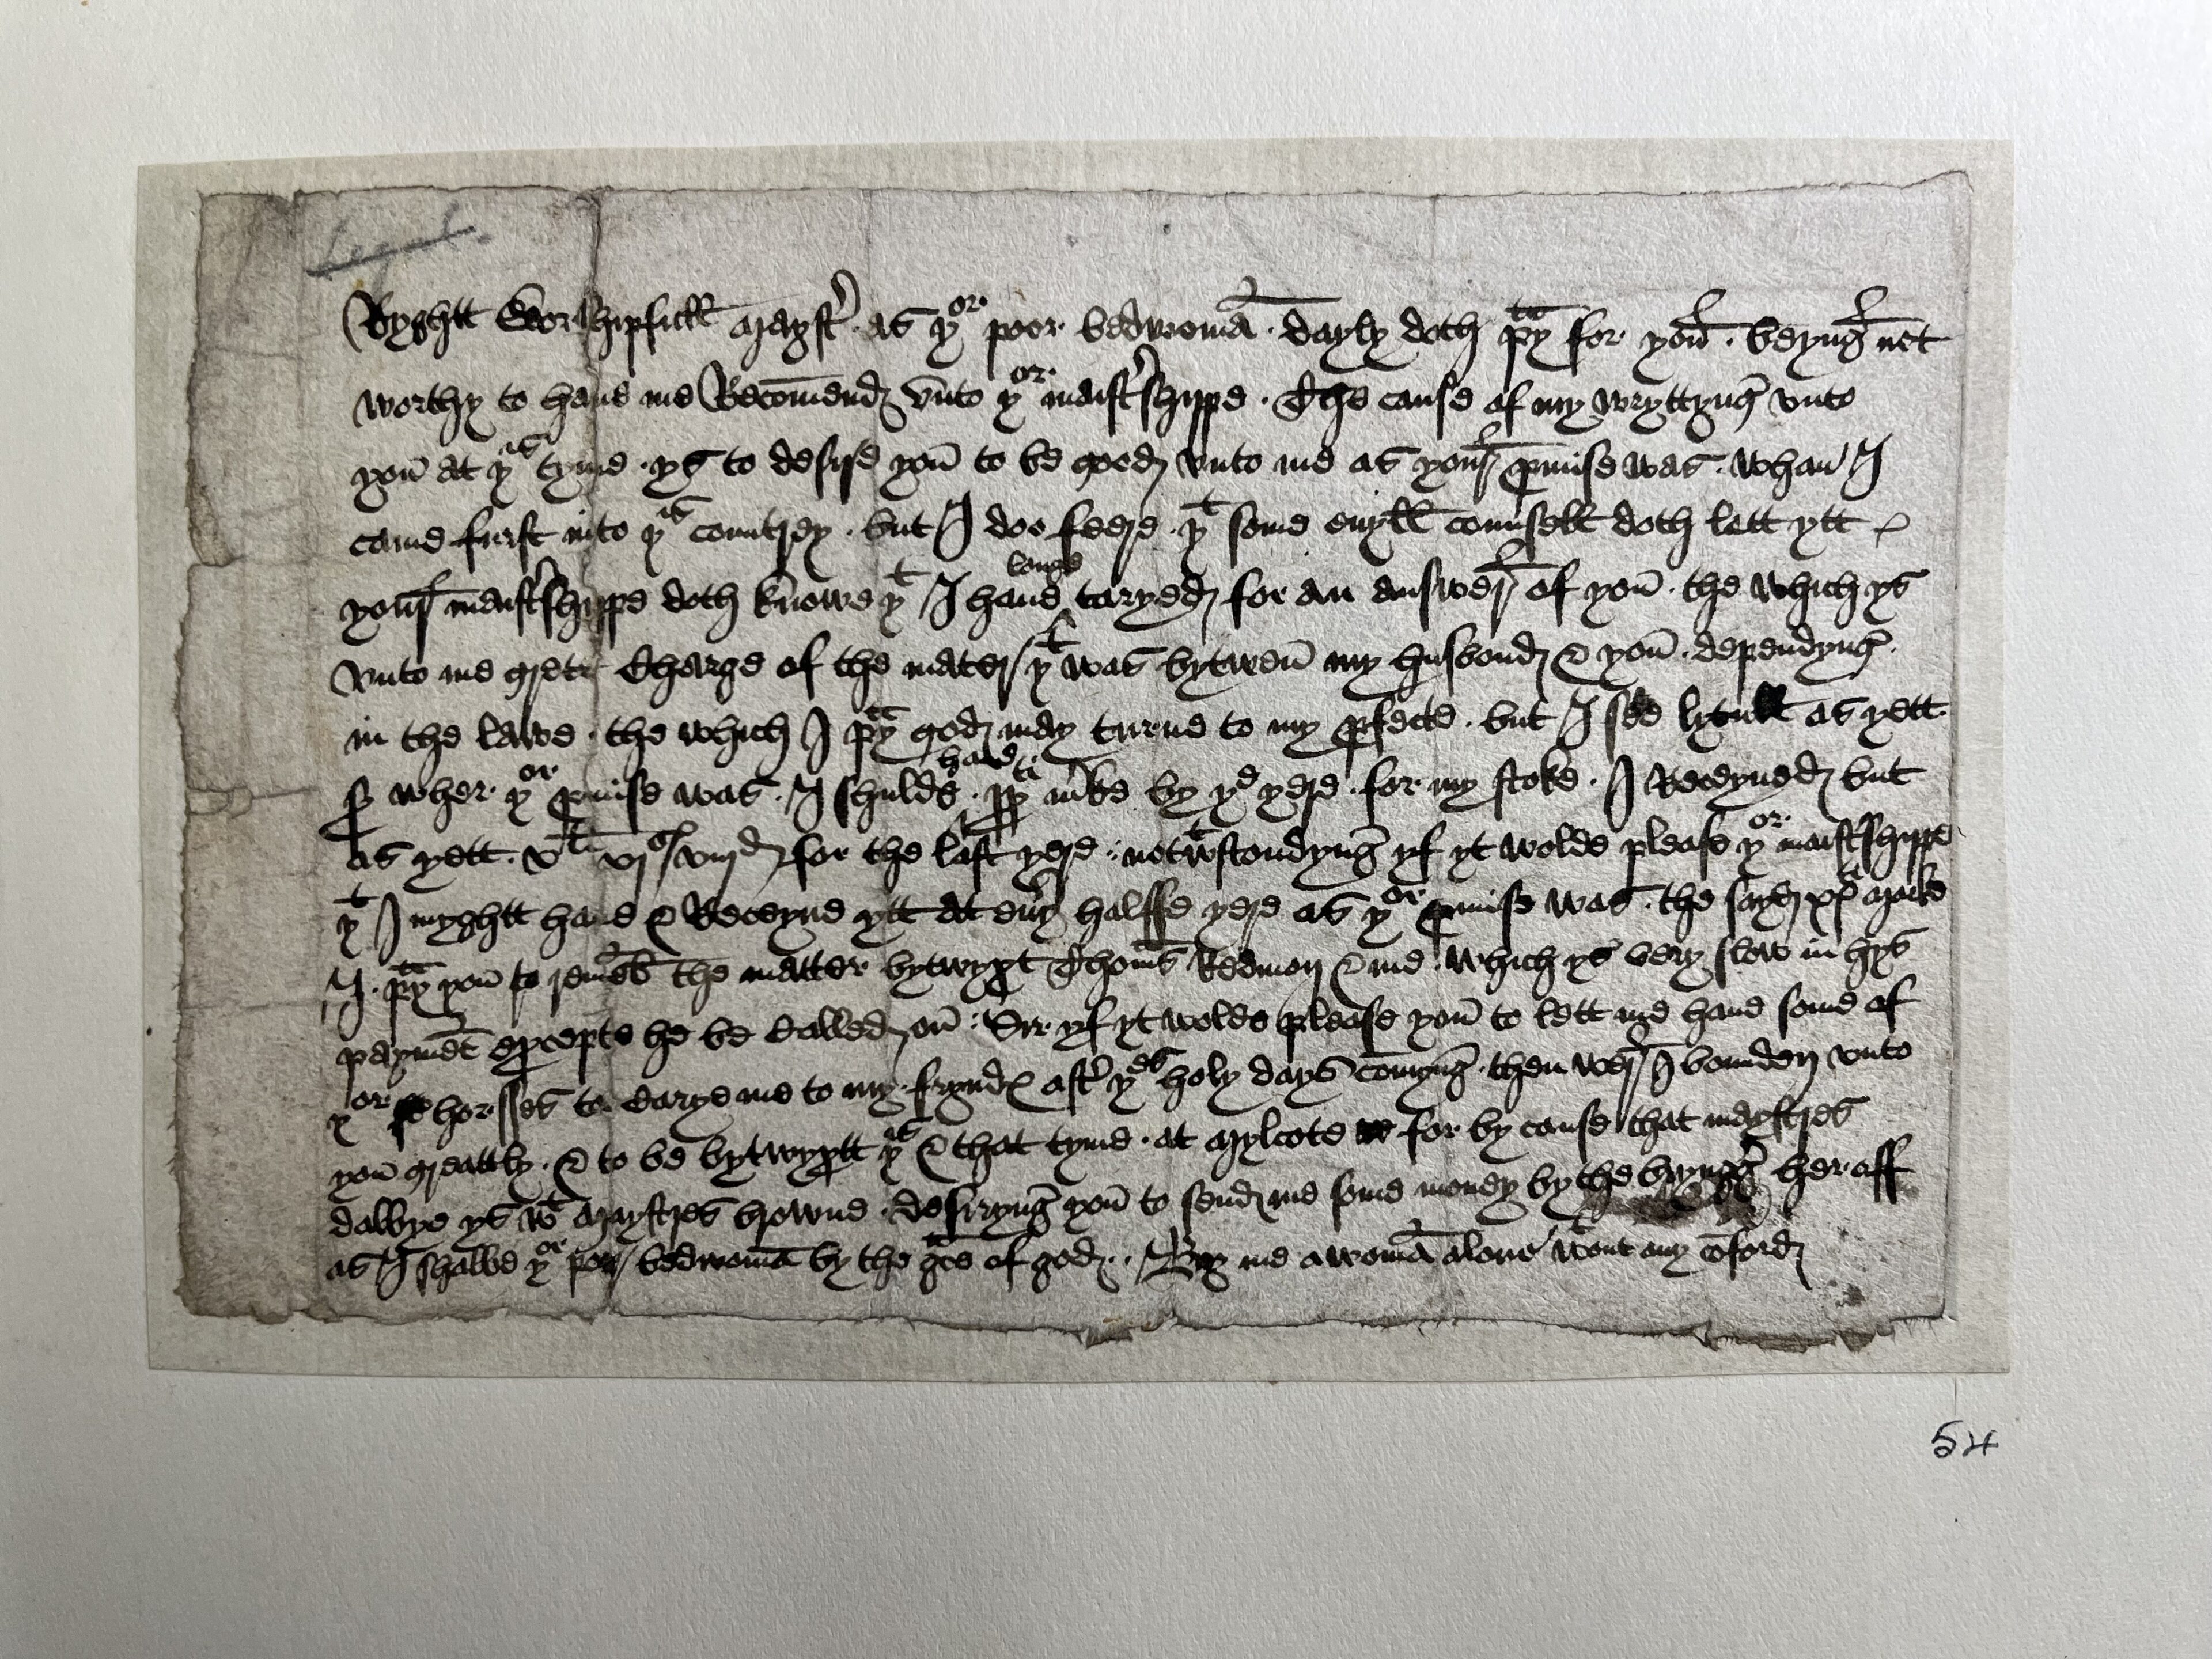 Legal.
Ryghtt Worshipfull Mayst' as yor poor bedwomā dayly doth p̄y for yoū beyng not
worthy to haue me Recōmend vnto yor maist'shyppe The cause of my wryttyng vnto
yoū at yis tyme ys to desyre yoū to be good vnto me as your p̱mise was whan I
came furst into yis countrey but I doe feere yt some euyll counsell doth lett ytt
your maist'shippe doth knowe yt I haue longe taryed for an answer of yoū the which ys
vnto me grete Charge of the mater yt was bytwen my husbond & yoū dependyng
in the lawe the which I p̄y god may turne to my p̱fecte but I see lytull as yett
for wher yor p̱mise was I shulde haue xxti m'ke by ye yere for my stoke I Receyued but
as yett vli vis viijd for the last yere notwtstondyng yf yt wolde please yor maistshippe
yt I myghtt haue & Receyue ytt at eu'y halffe yere as yor p̱mise was the sayd xxti Marke
I p̄y yoū to remēb the matter bytwyxt Thom̄s Redmon & me which ys very slow in hys
paymēt excepte he be Called on Sir yf yt wolde please yoū to lett me haue some of
yor horsses to Carye me to my frynd aft' yes holy days comyng then wer I bounden vnto
yoū greattly & to be bytwyxtt yis & that tyme at Mylcote for by cause that maystres
dalbye ys wt Maystres browne desiryng yoū to send me some money by the bryng her off
as I shalbe yor poor bedwomā by the ḡce of god By me a womā alone wtout any cōford
54